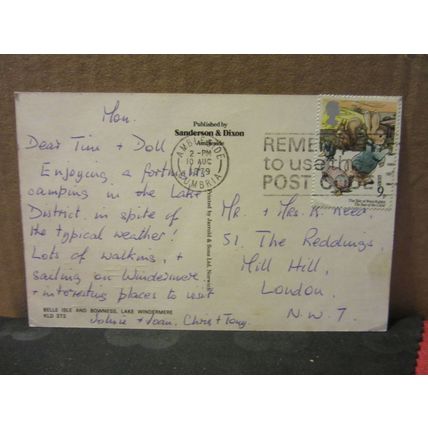 Mon.
Dear Tim + Doll
Enjoying a fortnight
camping in the Lake
District, in spite of
the typical weather!
Lots of walking, +
sailing on Windermere
+ interesting places to visit
BELLE ISLE AND BOWNESS, LAKE WINDERMERE
KLD 373
Johnie + Joan, Chris + Tony.
Published by
Sanderson & Dixon
Ambleside
Printed by Jarrold & Sons Ltd, Norwich
AMBLESIDE
2 - PM
10 AUG
1979
CUMBRIA
REMEMBER
to use the
POST CODE
The Tale of Peter Rabbit
9p
Mr. + Mrs. K. Reed
51. The Reddings,
Mill Hill,
London,
N.W.7.